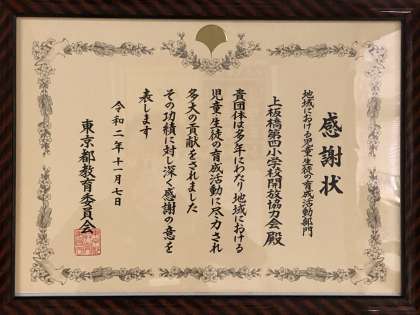 感謝状
地域における児童・生徒の育成活動部門
上板橋第四小学校開放協力会 殿
貴団体は多年にわたり地域における
児童・生徒の育成活動に尽力され
多大の貢献をされました
その功績に対し深く感謝の意を
表します
令和二年十一月七日
東京都教育委員会